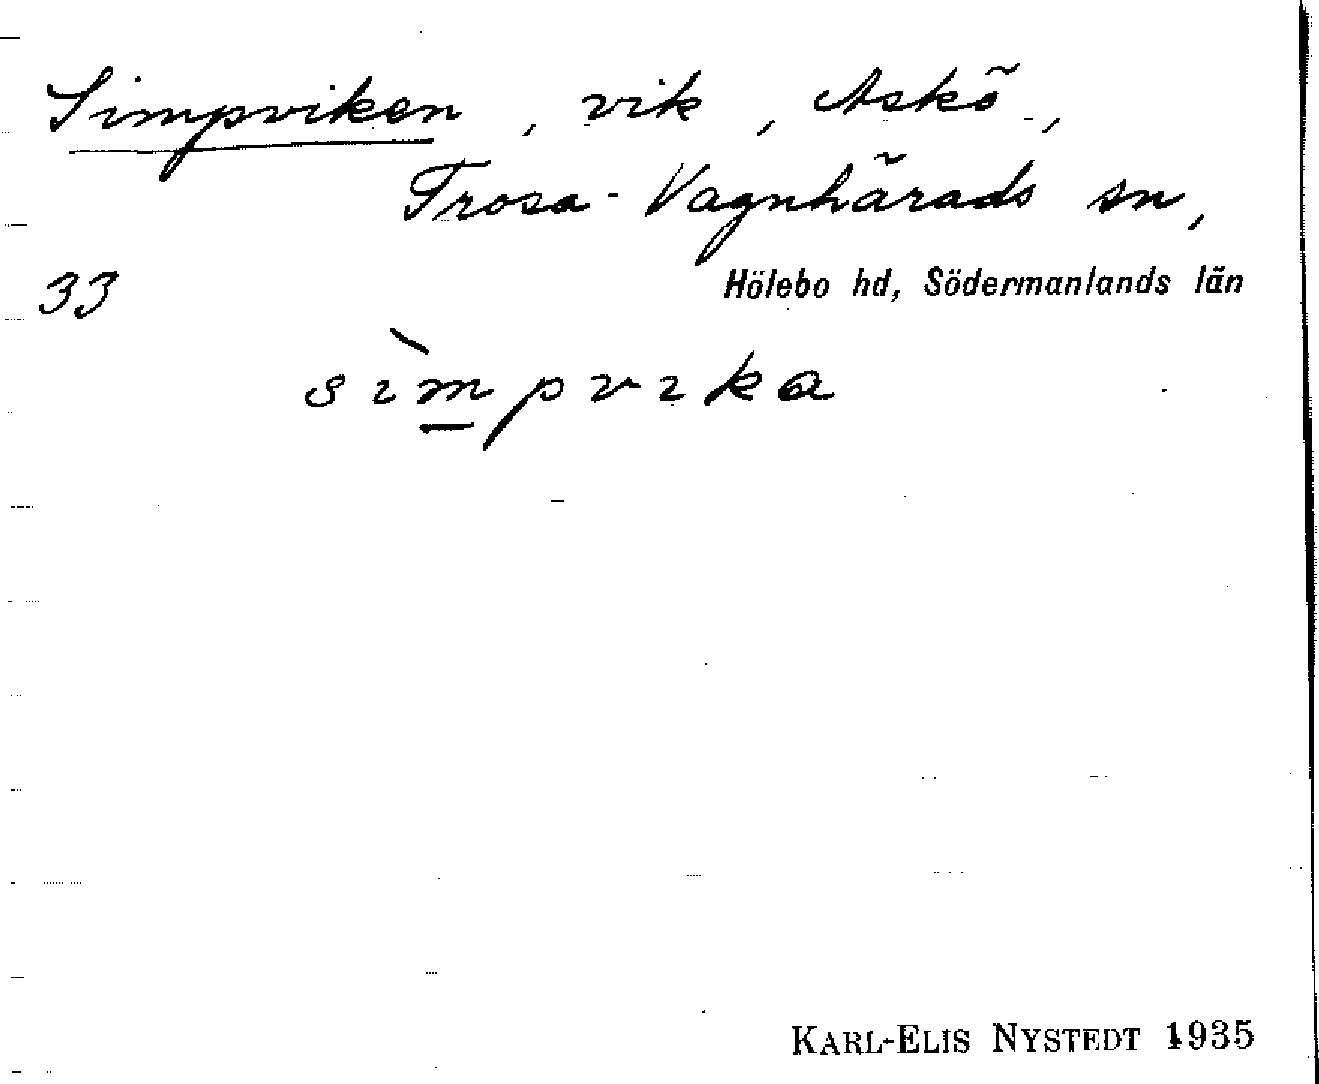 Simpviken, vik, Askö,
Trosa-Vagnhärads sn,
33
Hölebo hd, Södermanlands län
sìm̲pvika
KARL-ELIS NYSTEDT 1935